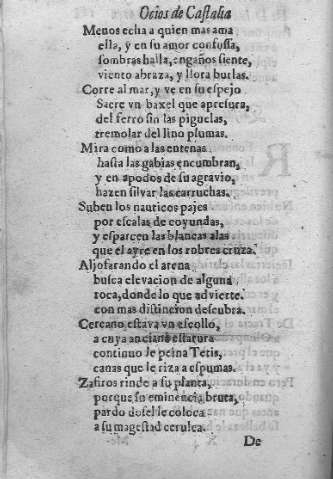 Ocios de Castalia
Menos echa a quien mas ama
ella, y en su amor confussa,
sombras halla, engaños siente,
viento abraza, y llora burlas.
Corre al mar, y ve en su espejo
Sacre vn baxel que apresura,
del ferro sin las piguelas,
tremolar del lino plumas.
Mira como a las entenas
hasta las gabias encumbran,
y en apodos de su agravio,
hazen silvar las carruchas.
Suben los nauticos pajes
por escalas de coyundas,
y esparcen las blancas alas
que el ayre en los robres cruza.
Aljofarando el arena
busca elevacion de alguna
roca, donde lo que advierte
con mas distincion descubra.
Cercano estava vn escollo,
a cuya anciana estatura
continuo le peina Tetis,
canas que le riza a espumas.
Zafiros rinde a su planta,
porque su eminencia bruta,
pardo dosel le coloca
a su magestad cerulea.
X De